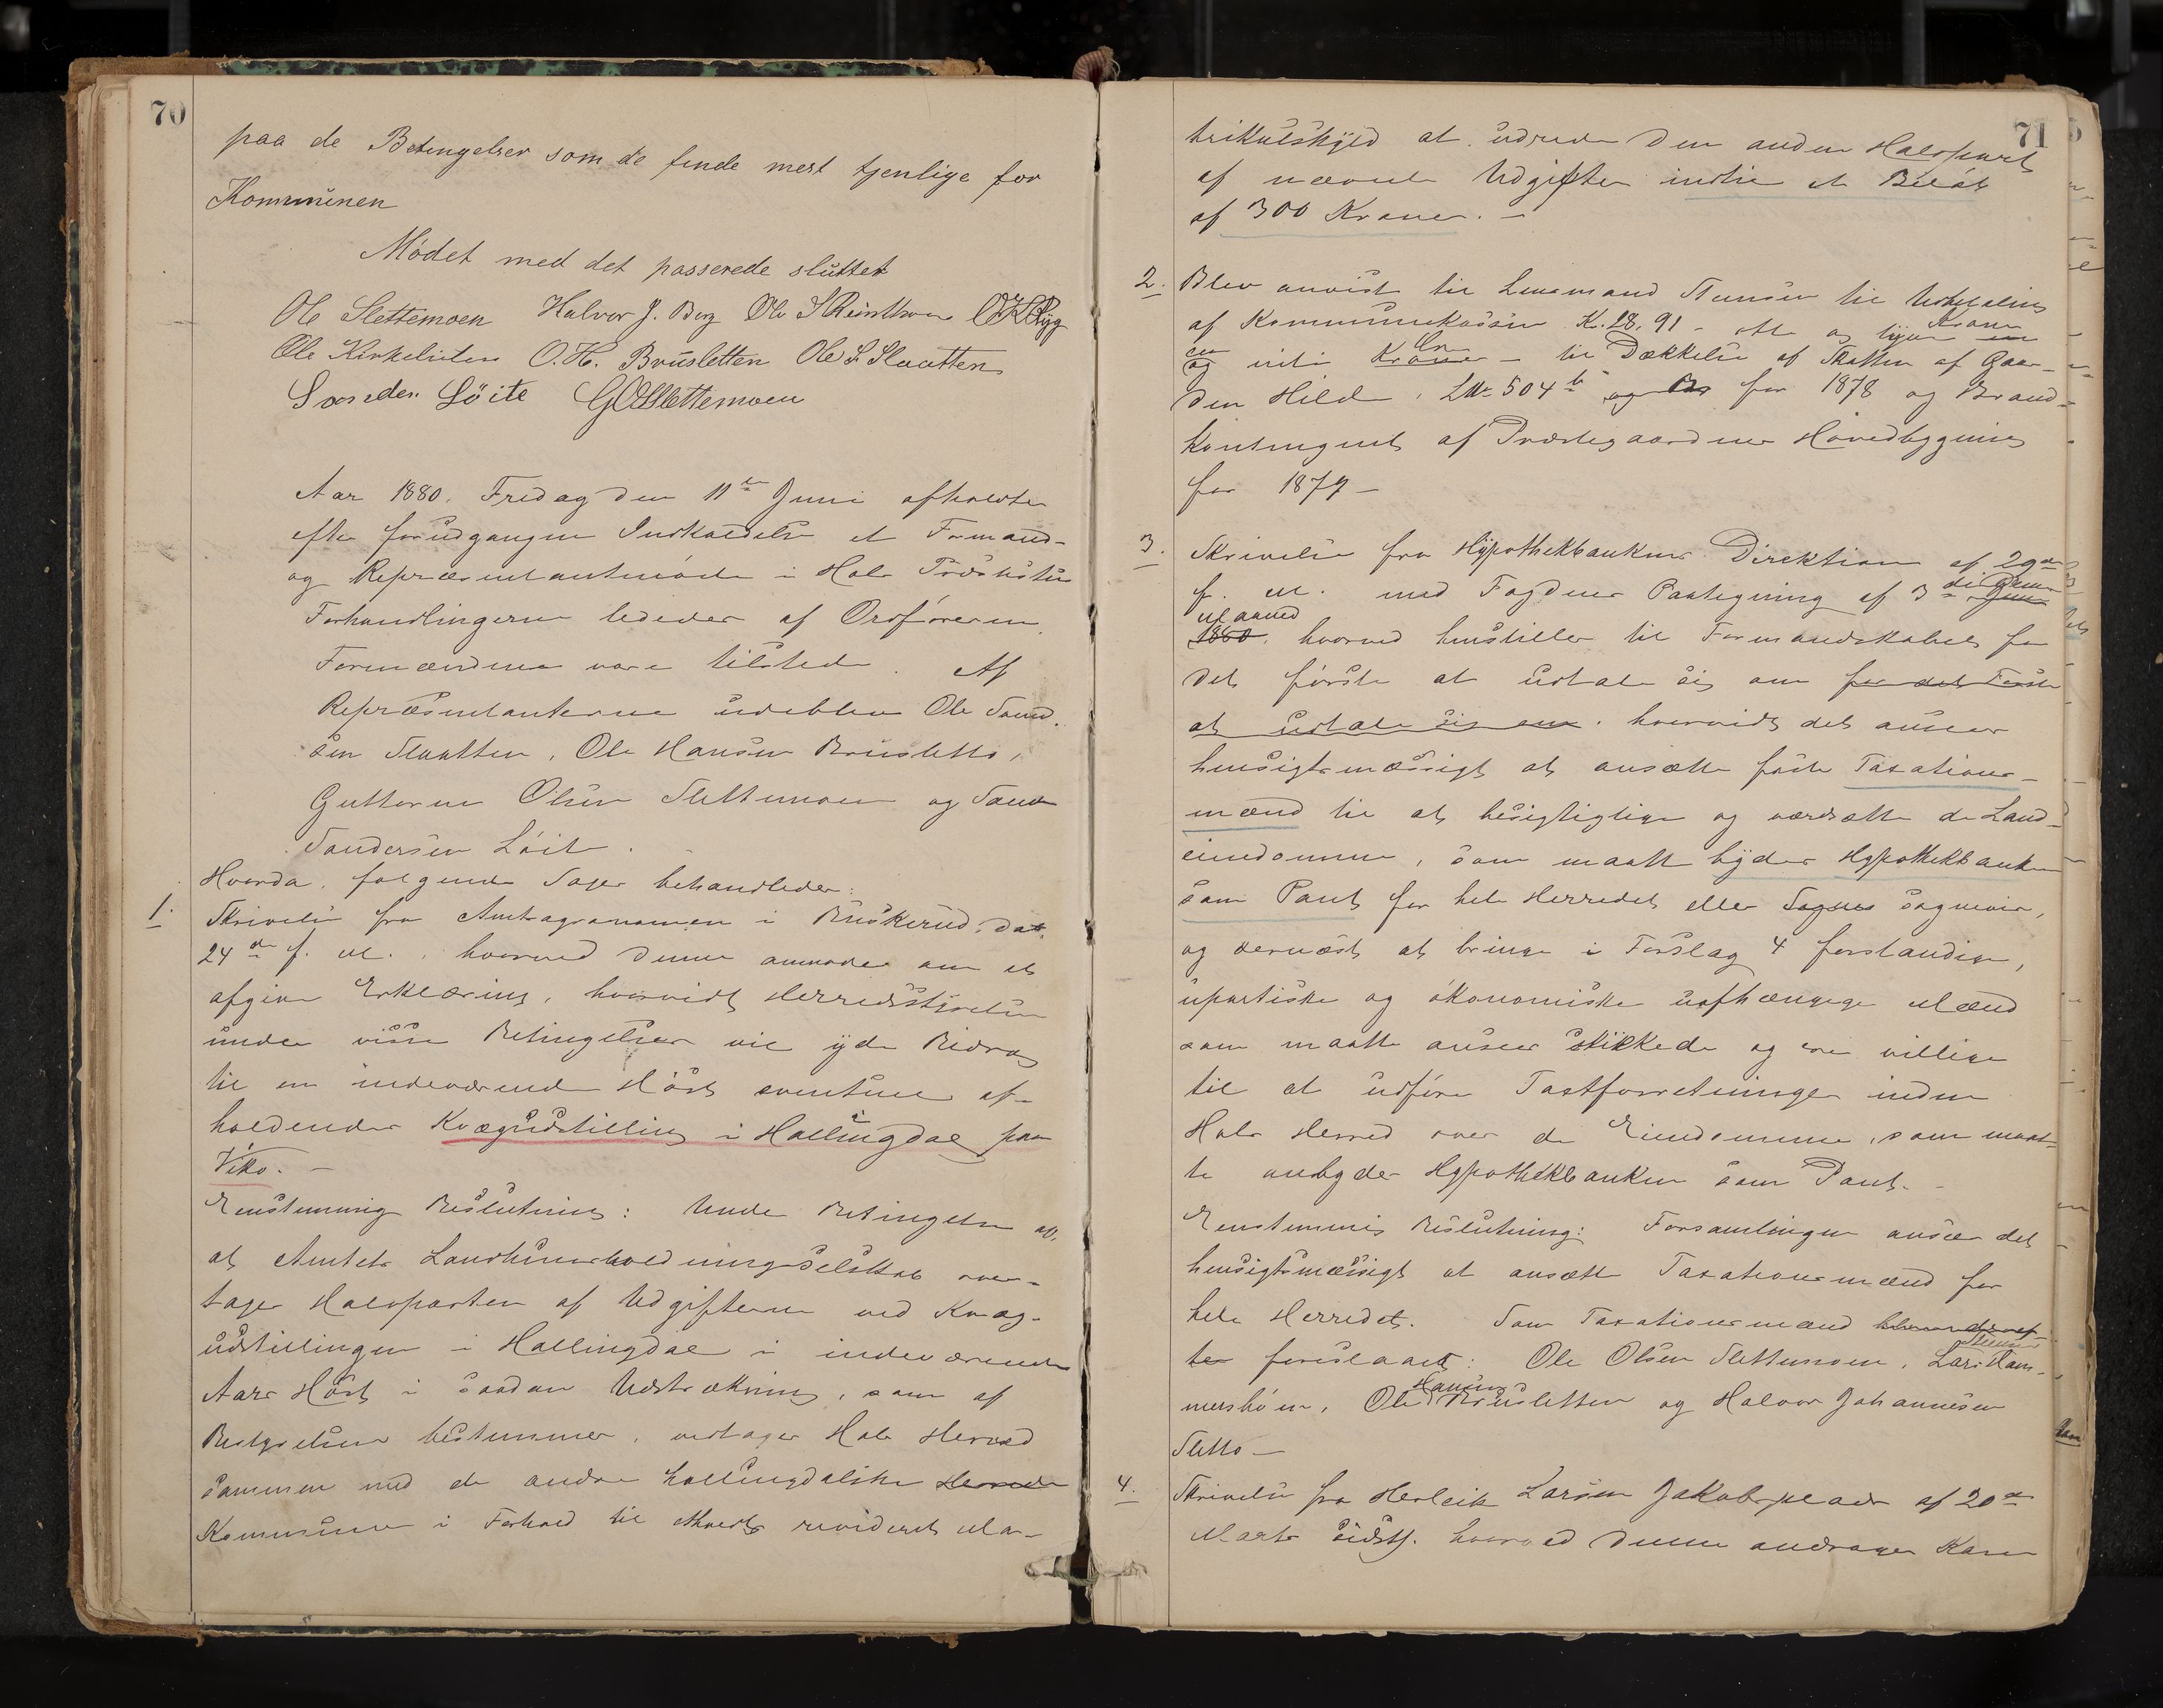 70
paa de Betingelser som de finde mest tjenlige for
Kommunen
Mødet med det passerede sluttet
Ole Slettemoen Halvor J. Berg Ole S Reinthon
Ole Kirkelieten O. H. Brusletten Ole S. Slaatten
Løite GOSlettemoen
Aar 1880. Fredag den 11te Juni afholdtes
efter forudgangen Indkaldelse et Formand-
og Repræsentantmøde i Hols Præstestue
Forhandlingerne lededes af Ordføreren
Formændene vare tilstede. Af
Repræsentanterne udebleve Ole Sand.
sen Slaatten, Ole Hansen Brusletto,
Guttorm Olsen Slettemoen og
Sandersen Løite.
Hvorda følgende Sager behandledes:
1. Skrivelse fra Amtsagronomen i Buskerud, dat.
24de f. M., hvorved denne anmoder om at
afgive Erklæring, hvorvidt Herredsstyrelsen
under visse Betingelser vil yde Bidrag
til en indeværende Høst eventuel af-
holdendes Kvægudstilling i Hallingdal paa
Viko. –
Enstemmig Beslutning: Under Betingelse af,
at Amtets Landhuusholdningsselskab over-
tager Halvparten af Udgifterne ved Kvæg-
udstillingen i Hallingdal i indeværende
Aars Høst i saadan Udstrækning, som af
Bestyrelsen bestemmes, vedtager Hols Herred
sammen med de andre hallingdalske Herreder
Kommuner i Forhold til revideret Ma-
71
trikulskyld at udrede den anden Halvpart
af nævnte Udgifter indtil et Beløb
af 300 Kroner. –
2. Blev anvist til Lensmand Stensen til Udbetaling
af Kommunekassen Kr. 28, 91 – otte og tyve Kroner
og niti Kroner Øre – til Dækkelse af Skatten af Gaar-
den Hild, LNr 504b og for 1878 og Brand-
kontingent af Præstegaardens Hovedbygning
for 1879 –
3. Skrivelse fra Hypothekbankens Direktion af 29de
f. M. med Fogdens Paategning af 3die Juni
Maaned
1880, hvorved henstilles til Formandskabet for
det første at udtale sig om for det Første
at udtale sig om. hvorvidt det anser
hensigtsmæssigt at ansætte faste Taxations-
mænd til at besigtiglige og værdsætte de Land-
eiendomme, som maatte bydes Hypothekbanken
som Pant for hele Herredet eller Sognes sognevis,
og dernæst at bringe i Forslag 4 forstandige,
upartiske og økonomiske uafhængige Mænd
som maatte ansees skikkede og ere villige
til at udføre Taxtforretninger inden
Hols Herred over de Eiendomme, som maat-
te anbydes Hypothekbanken som Pant. –
Enstemmig Beslutning: Forsamlingen anser det
hensigtsmæssigt at ansætte Taxationsmænd for
hele Herredet. Som Taxationsmænd
foreslaaet: Ole Olsen Slettemoen, Lars Stensen Ham-
mersbøen, Ole Hansen Brusletten og Halvor Johannesen
Sletto –
4. Skrivelse fra Herleik Larsen Jakobsplads af 20de
Marts sidstl. hvorved denne andrager Kom